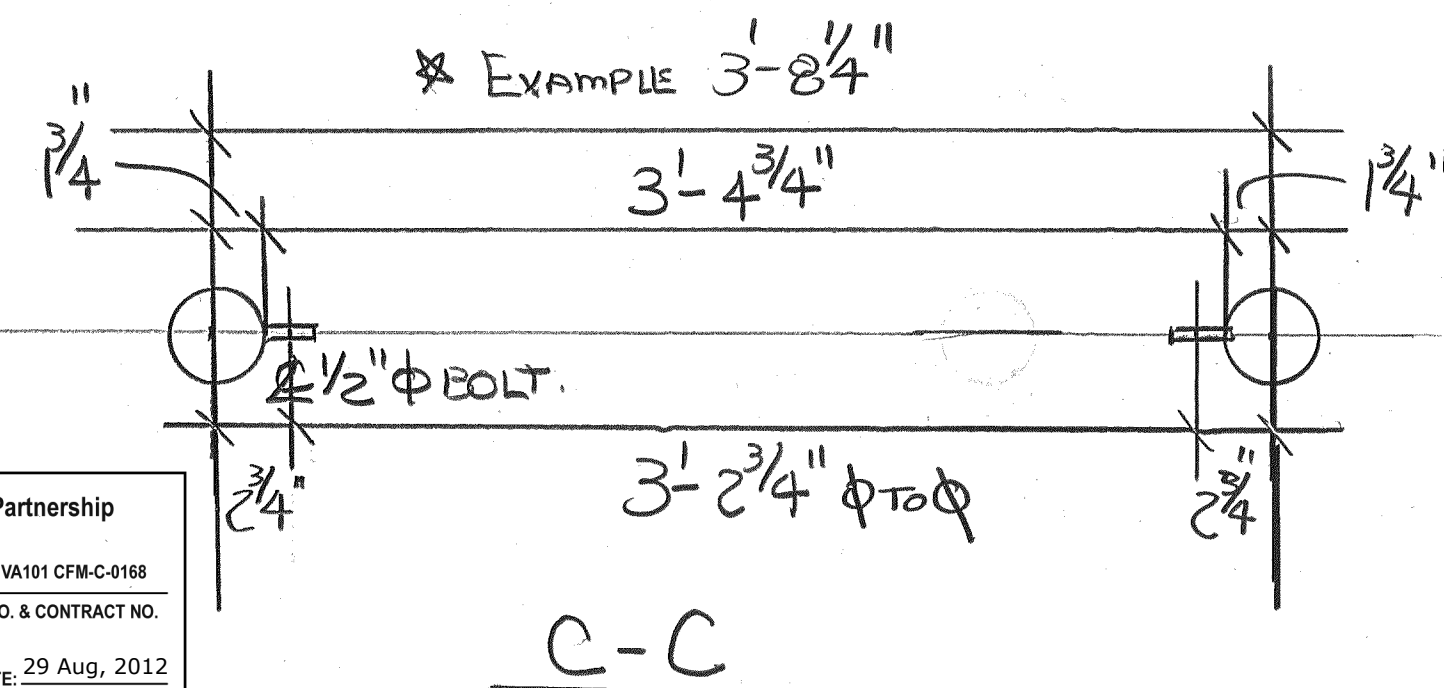 ☆ EXAMPLE 3'-8 1/4"
1 3/4"
3'-4 3/4"
1 3/4"
℄ 1/2" Φ BOLT.
2 3/4"
3'-2 3/4" Φ TO Φ
2 3/4"
C-C
Partnership
VA101 CFM-C-0168
O. & CONTRACT NO.
TE: 29 Aug, 2012